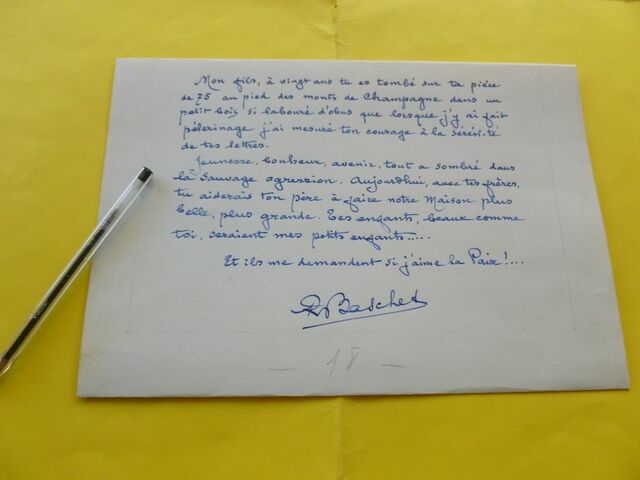 Mon fils, à vingt ans tu es tombé sur ta pièce
de 75 au pied des monts de Champagne dans un
petit bois si labouré d'obus que lorsque j'y ai fait
pèlerinage j'ai mesuré ton courage à la sérénité
de tes lettres.
Jeunesse, bonheur, avenir, tout a sombré dans
la sauvage agression. Aujourd'hui, avec tes frères,
tu aiderais ton père à faire notre Maison plus
belle, plus grande. Tes enfants, beaux comme
toi, seraient mes petits enfants.....
Et ils me demandent si j'aime la Paix!....
R Baschet
- 18 -